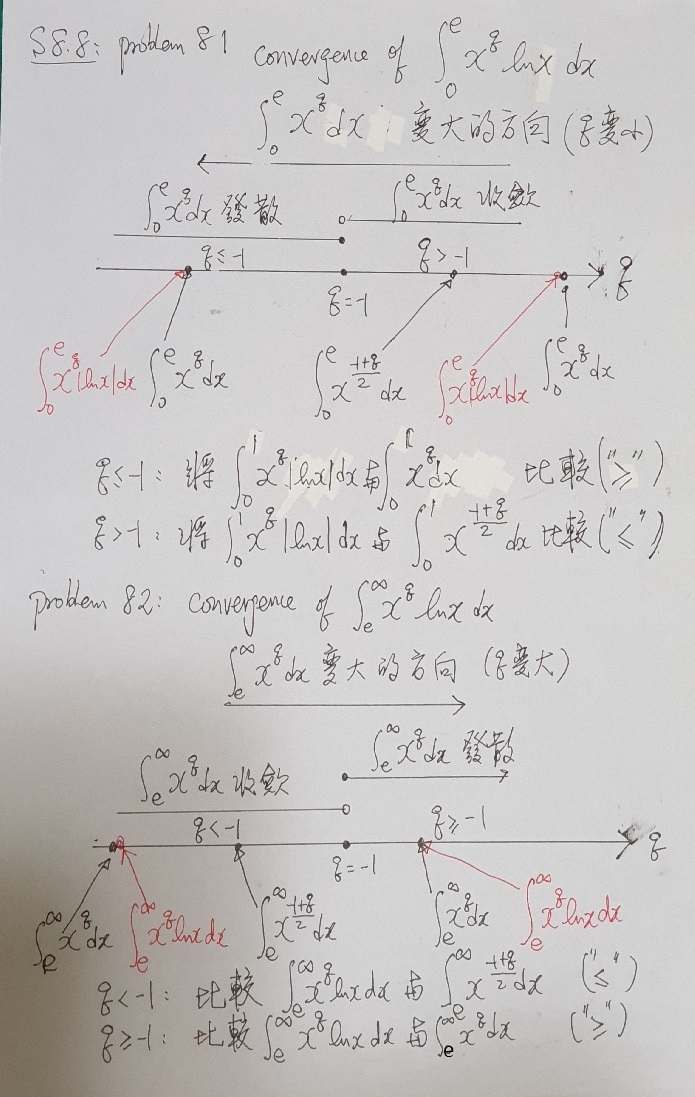 S8.8: problem 81 convergence of ∫₀ᵉ x^q ln x dx
∫₀ᵉ x^q dx : 變大的方向 (q變小)
∫₀ᵉ x^q dx 發散 ∫₀ᵉ x^q dx 收歛
q ≤ -1 q > -1 q
q = -1
∫₀ᵉ x^q |ln x| dx ∫₀ᵉ x^q dx ∫₀ᵉ x^((-1+q)/2) dx ∫₀ᵉ x^q |ln x| dx ∫₀ᵉ x^q dx
q ≤ -1 : 將 ∫₀¹ x^q |ln x| dx 與 ∫₀¹ x^q dx 比較 ("≥")
q > -1 : 將 ∫₀¹ x^q |ln x| dx 與 ∫₀¹ x^((-1+q)/2) dx 比較 ("≤")
problem 82: convergence of ∫ₑ^∞ x^q ln x dx
∫ₑ^∞ x^q dx 變大的方向 (q變大)
∫ₑ^∞ x^q dx 收歛 ∫ₑ^∞ x^q dx 發散
q < -1 q ≥ -1 q
q = -1
∫ₑ^∞ x^q dx ∫ₑ^∞ x^q ln x dx ∫ₑ^∞ x^((-1+q)/2) dx ∫ₑ^∞ x^q dx ∫ₑ^∞ x^q ln x dx
q < -1 : 比較 ∫ₑ^∞ x^q ln x dx 與 ∫ₑ^∞ x^((-1+q)/2) dx ("≤")
q ≥ -1 : 比較 ∫ₑ^∞ x^q ln x dx 與 ∫ₑ^∞ x^q dx ("≥")